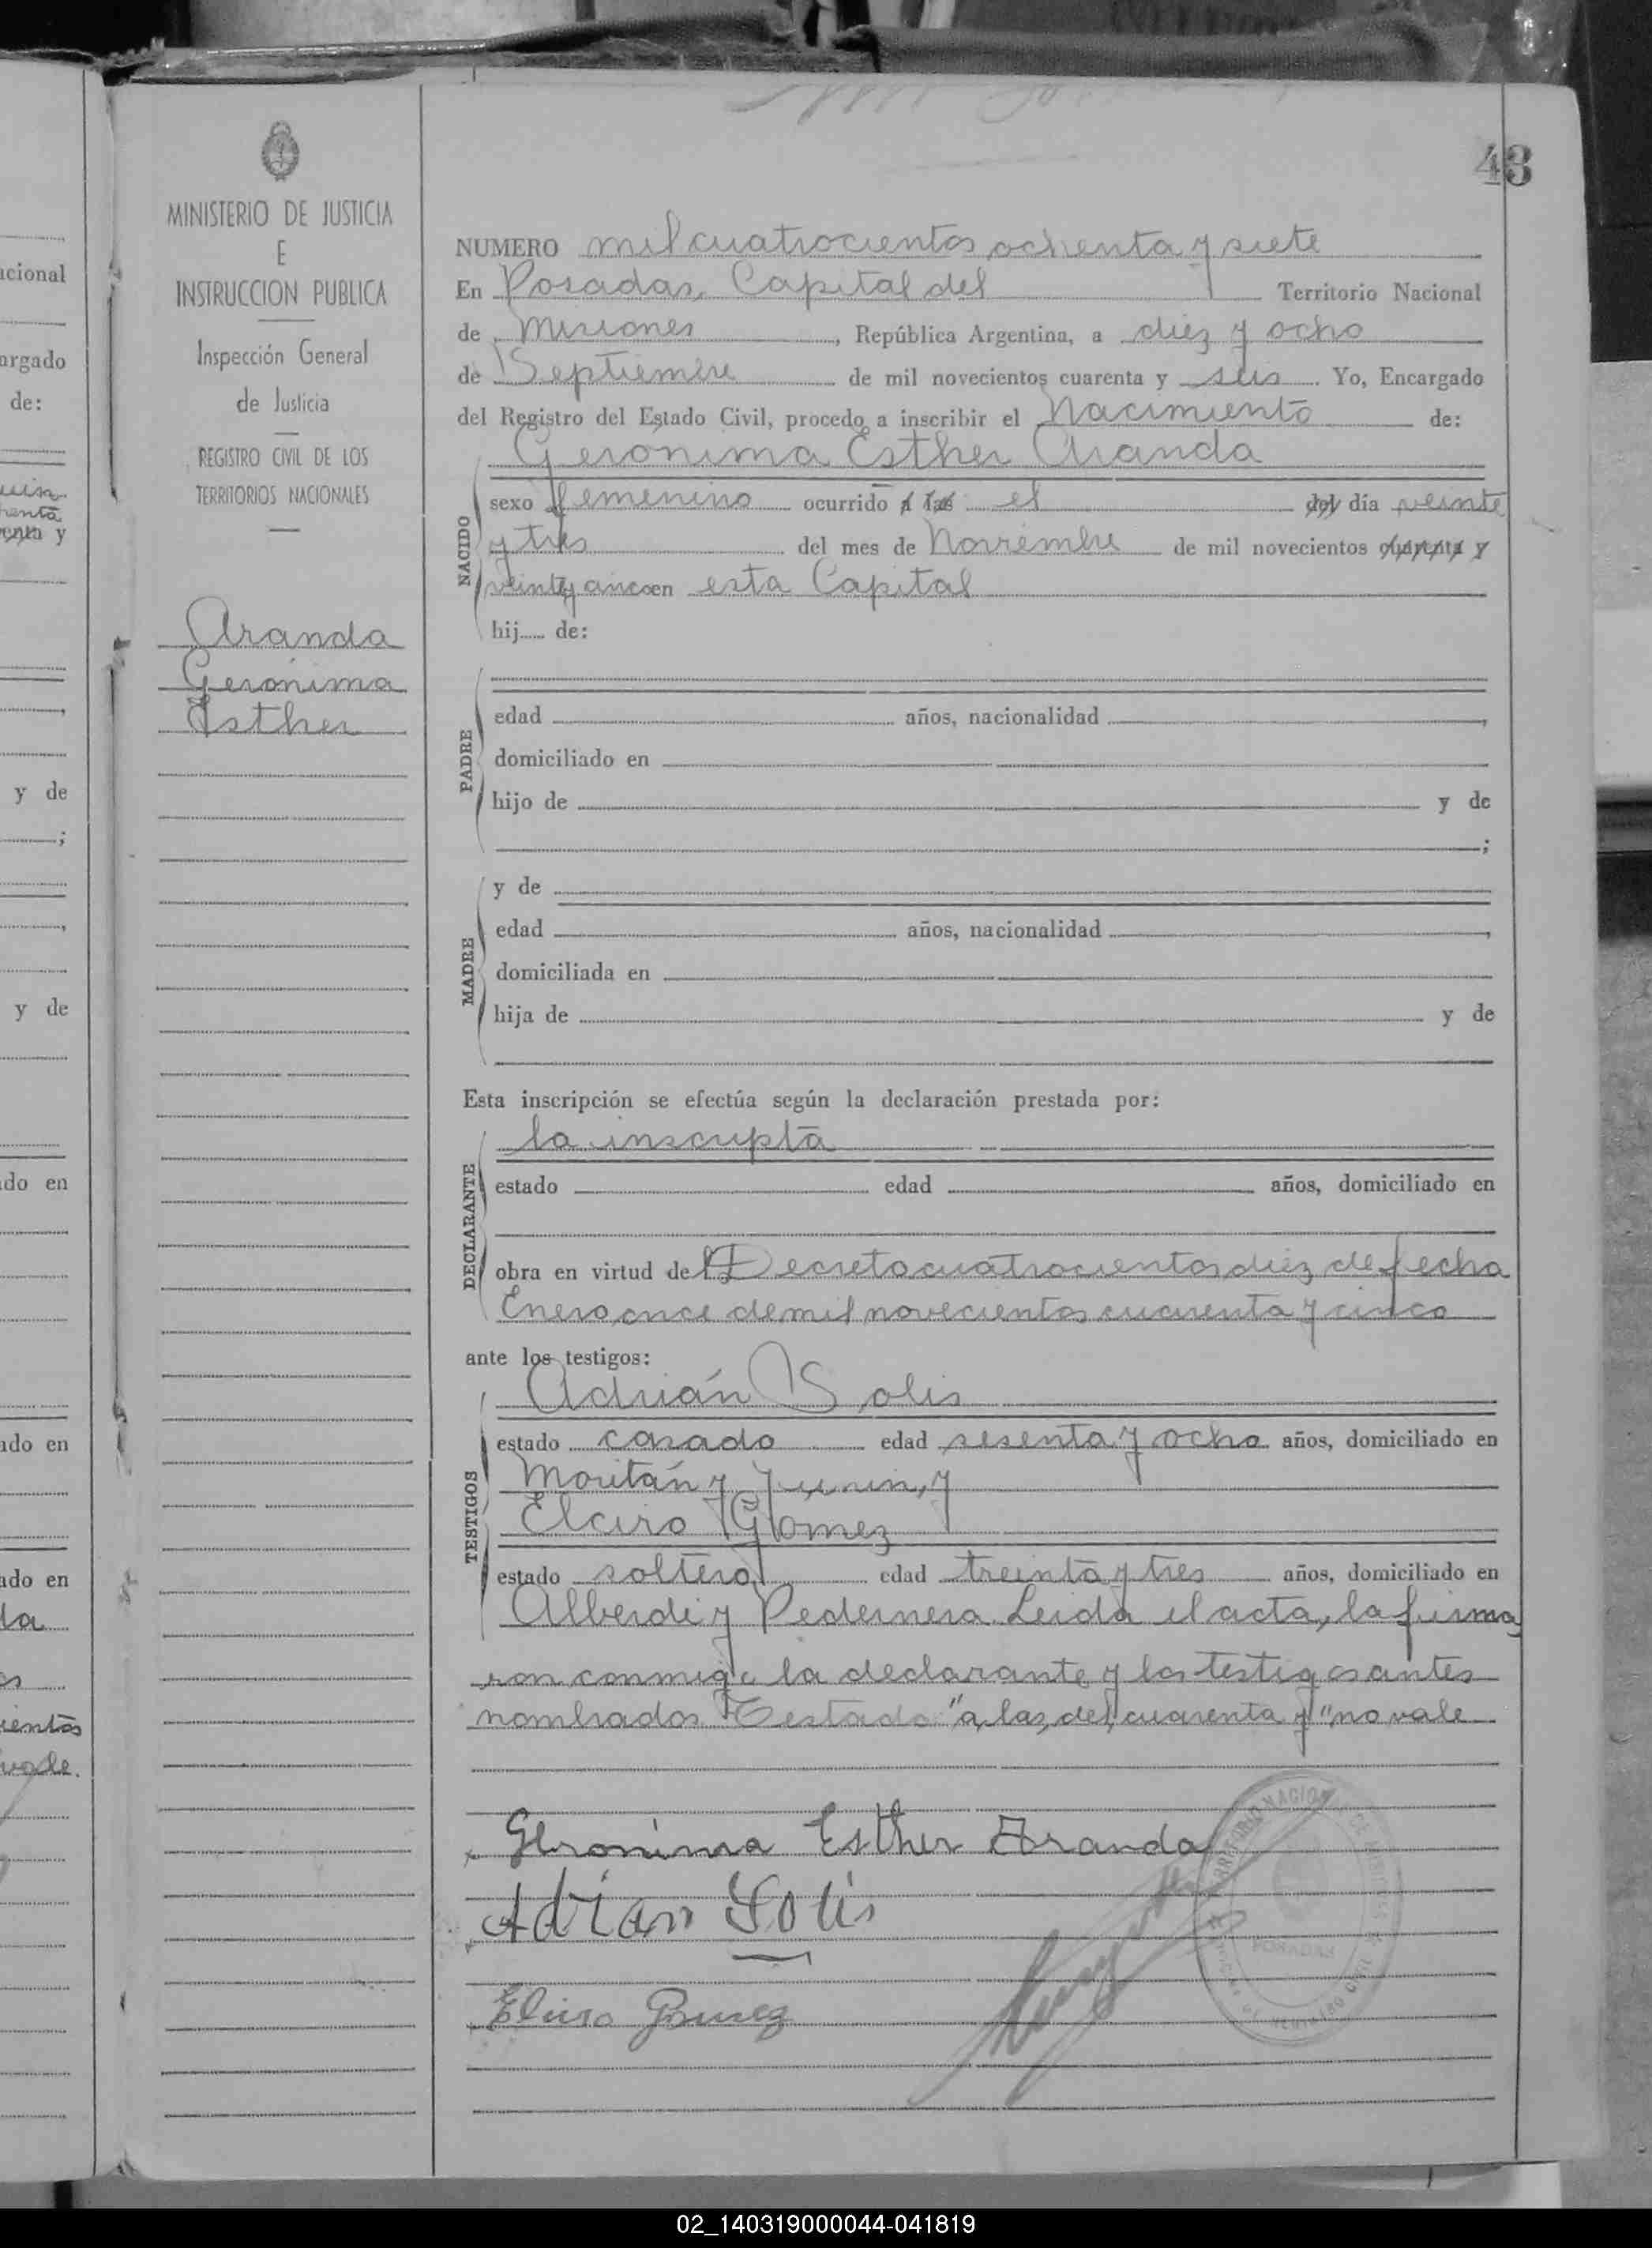 43
MINISTERIO DE JUSTICIA
E
INSTRUCCION PUBLICA
Inspección General
de Justicia
REGISTRO CIVIL DE LOS
TERRITORIOS NACIONALES
Aranda
Gerónima
Esther
NUMERO mil cuatrocientos ochenta y siete
En Posadas, Capital del Territorio Nacional
de Misiones, República Argentina, a diez y ocho
de Septiembre de mil novecientos cuarenta y seis. Yo, Encargado
del Registro del Estado Civil, procedo a inscribir el Nacimiento de:
Gerónima Esther Aranda
NACIDO
sexo femenino ocurrido a las el del día veinte
y tres del mes de Noviembre de mil novecientos cuarenta y
veinte y cinco en esta Capital
hij...... de:
PADRE
edad años, nacionalidad ,
domiciliado en
hijo de y de
;
MADRE
y de
edad años, nacionalidad ,
domiciliada en
hija de y de
Esta inscripción se efectúa según la declaración prestada por:
DECLARANTE
la inscripta
estado edad años, domiciliado en
obra en virtud del Decreto cuatrocientos diez de fecha
Enero once de mil novecientos cuarenta y cinco
ante los testigos:
TESTIGOS
Adrián Solis
estado casado edad sesenta y ocho años, domiciliado en
Moritán y Junin, y
Elciro Gomez
estado soltero edad treinta y tres años, domiciliado en
Alberdi y Pedernera. Leida el acta, la firma
ron conmigo la declarante y los testigos antes
nombrados Testado "a, las, del, cuarenta y" no vale
Geronima Esther Aranda
Adrian Solis
Elciro Gomez
POSADAS
acional
argado
de:
y de
;
y de
do en
ado en
ado en
da
vale.
02_140319000044-041819